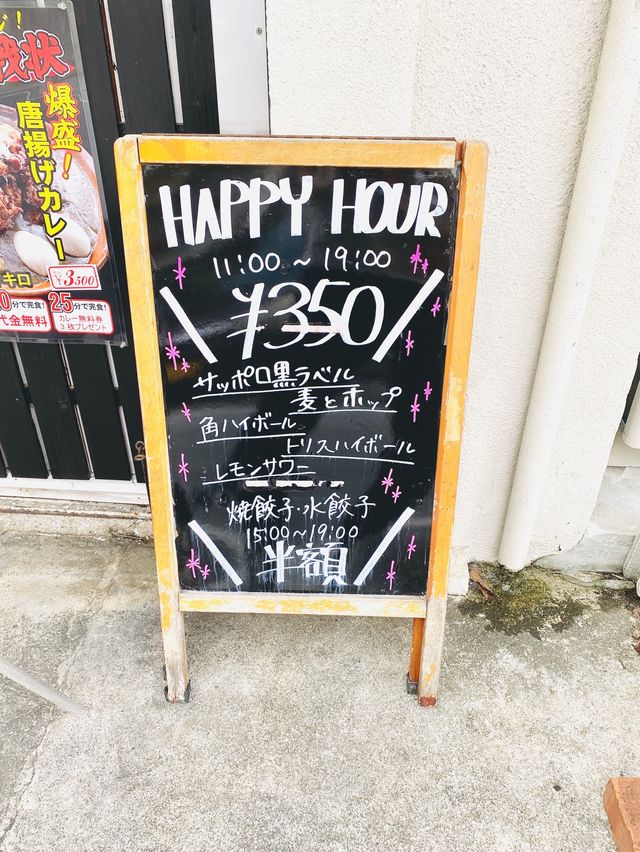 戦状
爆盛!
唐揚げカレー
キロ
¥3,500
0分で完食!
代金無料
25分で完食!
カレー無料券
3枚プレゼント
HAPPY HOUR
11:00 ~ 19:00
¥350
サッポロ黒ラベル
麦とホップ
角ハイボール
トリスハイボール
レモンサワー
焼餃子・水餃子
15:00~19:00
半額